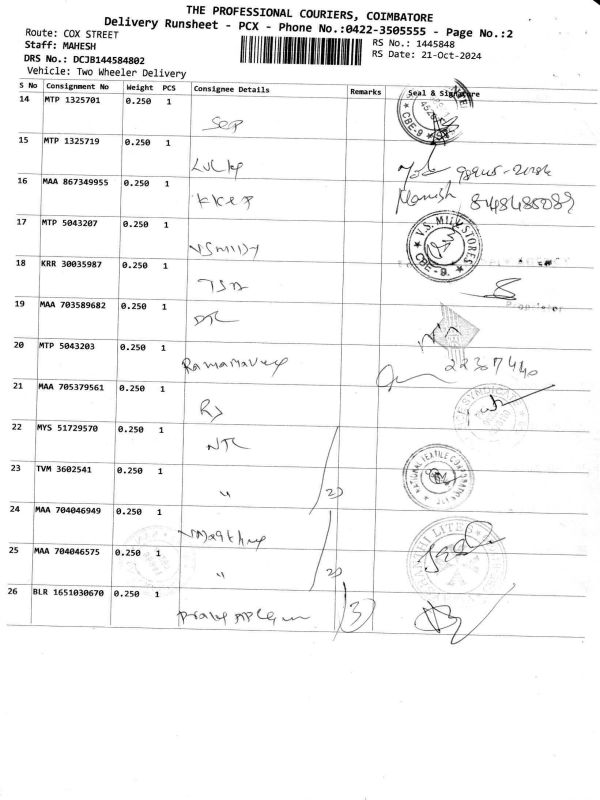 THE PROFESSIONAL COURIERS, COIMBATORE
Delivery Runsheet - PCX - Phone No.:0422-3505555 - Page No.:2
Route: COX STREET
RS No.: 1445848
Staff: MAHESH
RS Date: 21-Oct-2024
DRS No.: DCJB144584802
Vehicle: Two Wheeler Delivery
S No Consignment No Weight PCS Consignee Details Remarks Seal & Signature
14 MTP 1325701 0.250 1
CBE-9
15 MTP 1325719 0.250 1
Lucky
16 MAA 867349955 0.250 1
KKex Manish
17 MTP 5043207 0.250 1
V.S. MILK STORES
CBE-9.
VSMilky
18 KRR 30035987 0.250 1
TSA
Proprietor
19 MAA 703589682 0.250 1
DTC
20 MTP 5043203 0.250 1
22307440
21 MAA 705379561 0.250 1
SYNDICATE
RJ
22 MYS 51729570 0.250 1
NTC
NATIONAL TEXTILE CORPORATION
23 TVM 3602541 0.250 1
" 2)
24 MAA 704046949 0.250 1
LITES
25 MAA 704046575 0.250 1
" 2)
26 BLR 1651030670 0.250 1
3)